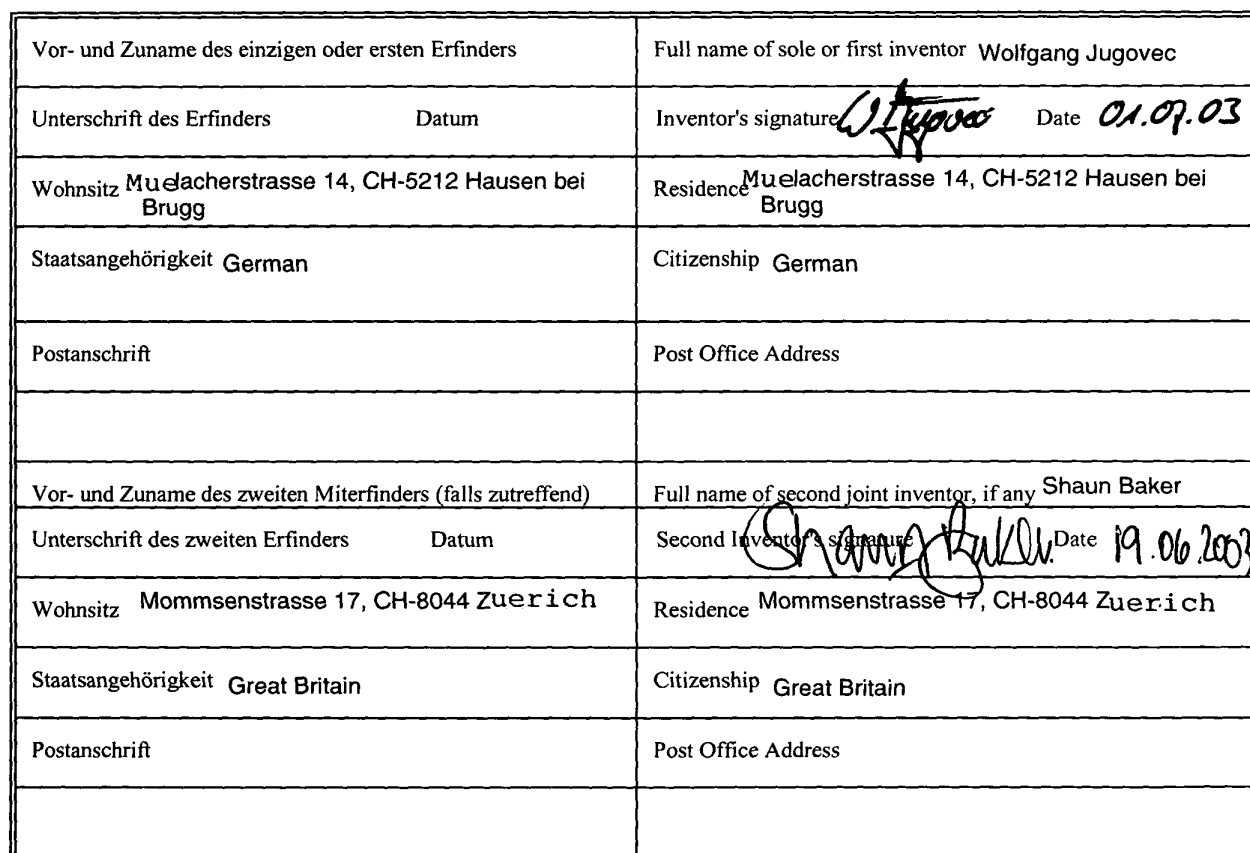 Vor- und Zuname des einzigen oder ersten Erfinders
Full name of sole or first inventor Wolfgang Jugovec
Unterschrift des Erfinders Datum
Inventor's signature W Jugovec Date 01.07.03
Wohnsitz Muelacherstrasse 14, CH-5212 Hausen bei
Brugg
Residence Muelacherstrasse 14, CH-5212 Hausen bei
Brugg
Staatsangehörigkeit German
Citizenship German
Postanschrift
Post Office Address
Vor- und Zuname des zweiten Miterfinders (falls zutreffend)
Full name of second joint inventor, if any Shaun Baker
Unterschrift des zweiten Erfinders Datum
Second Inventor's signature Shaun Baker Date 19.06.2003
Wohnsitz Mommsenstrasse 17, CH-8044 Zuerich
Residence Mommsenstrasse 17, CH-8044 Zuerich
Staatsangehörigkeit Great Britain
Citizenship Great Britain
Postanschrift
Post Office Address